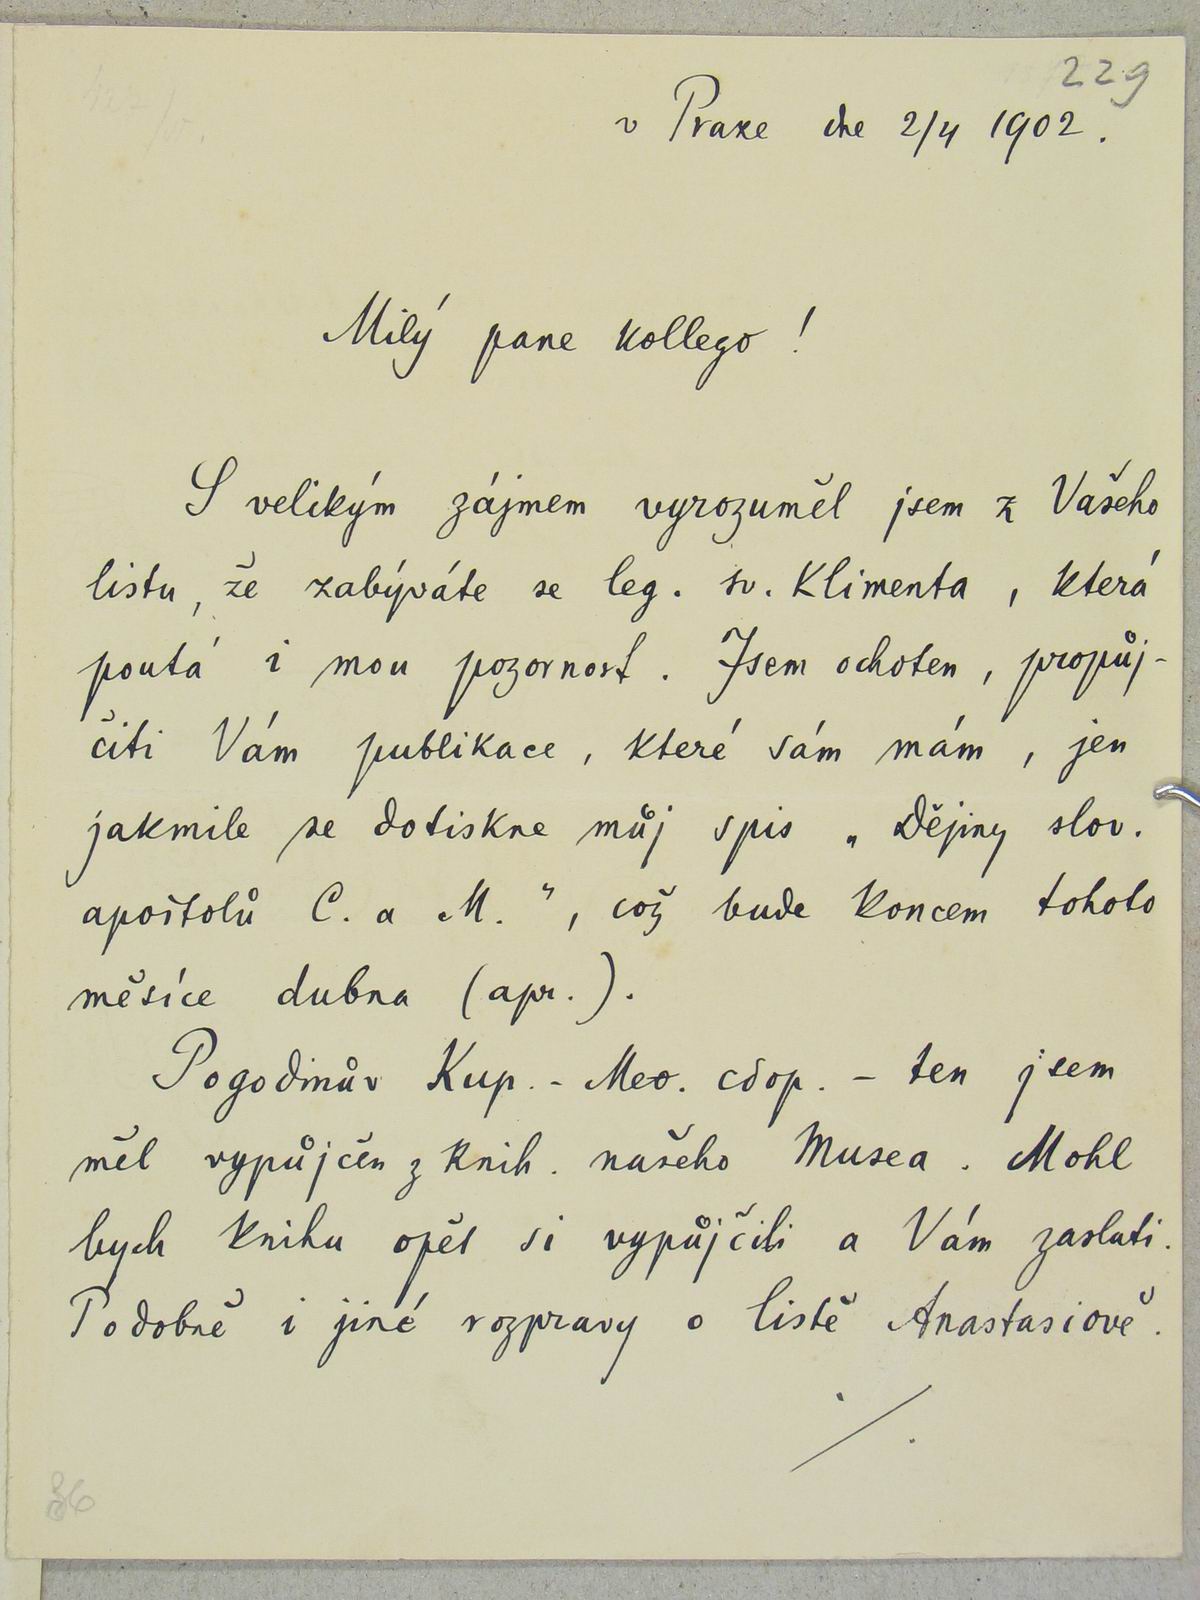 229
v Praze dne 2/4 1902.
Milý pane kollego!
S velikým zájmem vyrozuměl jsem z Vašeho
listu, že zabýváte se leg. sv. Klimenta, která
poutá i mou pozornost. Jsem ochoten, propůj-
čiti Vám publikace, které sám mám, jen
jakmile se dotiskne můj spis „Dějiny slov.
apoštolů C. a M.", což bude koncem tohoto
měsíce dubna (apr.).
Pogodinův Кир.-Меѳ. сбор. – ten jsem
měl vypůjčen z knih. našeho Musea. Mohl
bych knihu opět si vypůjčiti a Vám zaslati.
Podobně i jiné rozpravy o listě Anastasiově.
./.
36